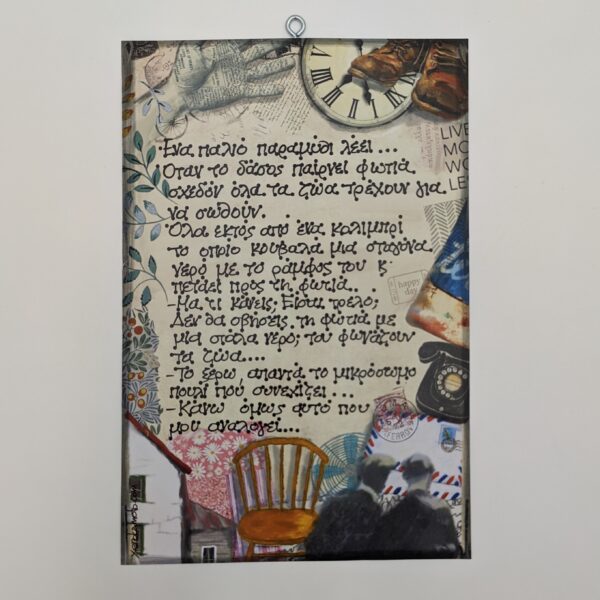 Ένα παλιό παραμύθι λέει...
Όταν το δάσος παίρνει φωτιά
σχεδόν όλα τα ζώα τρέχουν για
να σωθούν.
Όλα εκτός από ένα κολιμπρί
το οποίο κουβαλά μια σταγόνα
νερό με το ράμφος του κ΄
πετάει προς τη φωτιά..
-Μα τι κάνεις; Είσαι τρελό;
Δεν θα σβήσεις τη φωτιά με
μια στάλα νερό; του φωνάζουν
τα ζώα...
-Το ξέρω, απαντά το μικρόσωμο
πουλί που συνεχίζει...
-Κάνω όμως αυτό που
μου αναλογεί...
LIVE
MO
WO
LE
happy
day